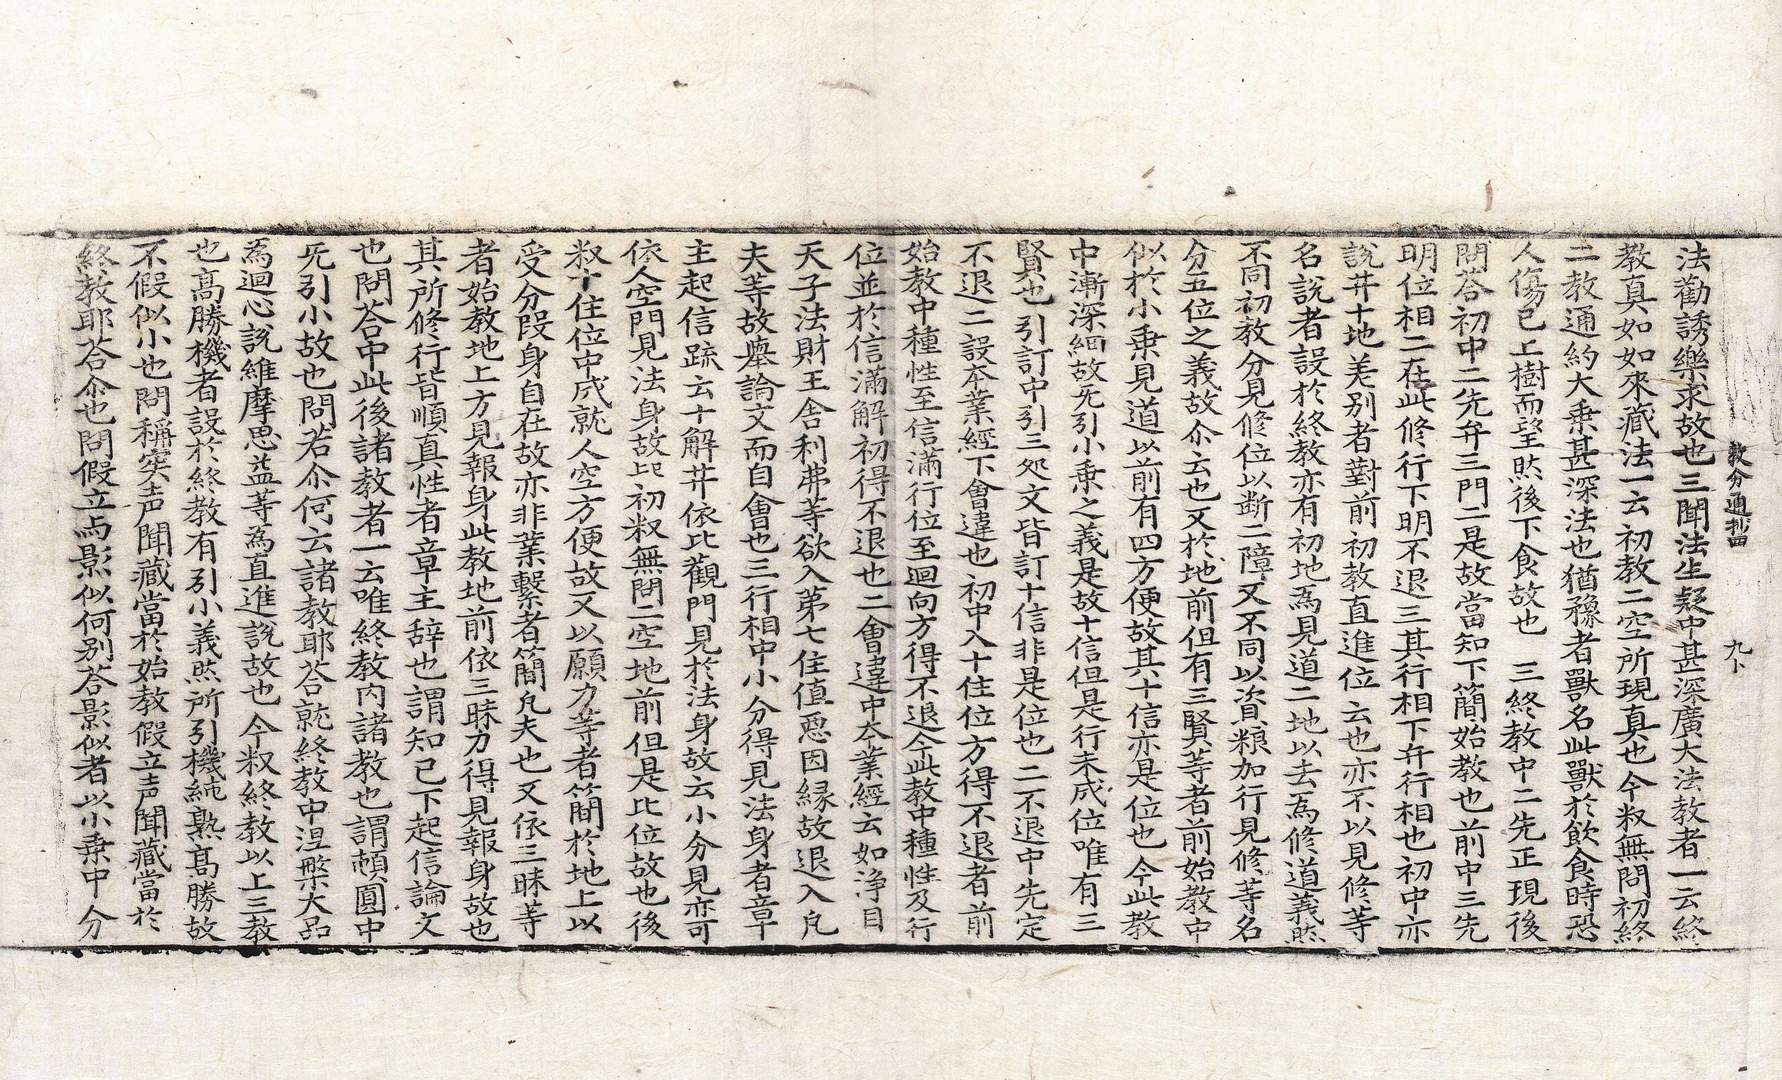 教分通抄四　九卜
法勸誘樂求故也三聞法生疑中甚深廣大法教者一云終
教真如如來藏法一云初教二空所現真也今叙無問初終
二教通約大乗甚深法也猶豫者獸名此獸於飲食時恐
人傷己上樹而望然後下食故也　三終教中二先正現後
問荅初中二先弁三門二是故當知下簡始教也前中三先
明位相二在此修行下明不退三其行相下弁行相也初中亦
說井十地差別者對前初教直進位云也亦不以見修等
名說者設於終教亦有初地為見道二地以去為修道義然
不同初教分見修位以断二障又不同以資粮加行見修等名
分五位之義故尒云也又於地前但有三賢等者前始教中
似於小乗見道以前有四方便故其十信亦是位也今此教
中漸深緬故旡引小乗之義是故十信但是行未成位唯有三
賢也引訂中引三処文皆訂十信非是位也二不退中先定
不退二設夲業經下會違也初中入十住位方得不退者前
始教中種性至信滿行位至迴向方得不退今此教中種性及行
位並於信滿解初得不退也二會違中夲業經云如浄目
天子法財王舍利弗等欲入第七住值惡因縁故退入凡
夫等故舉論文而自會也三行相中小分得見法身者章
主起信䟽云十解井依比觀門見於法身故云小分見亦可
依人空門見法身故已初叙無問二空地前但是比位故也後
叙十住位中成就人空方便故又以願力等者簡於地上以
受分段身自在故亦非業繫者簡凡夫也又依三昧等
者始教地上方見報身此教地前依三昧力得見報身故也
其所修行皆順真性者章主辞也謂知已下起信論文
也問荅中此後諸教者一云唯終教內諸教也謂頓圓中
旡引小故也問若尒何云諸教耶荅就終教中涅槃大品
為迴心說維摩思益等為直進說故也今叙終教以上三教
也髙勝機者設於終教有引小義然所引機純熟髙勝故
不假似小也問稱實声聞藏當於始教假立声聞藏當於
終教耶荅尒也問假立与影似何別荅影似者以小乗中分